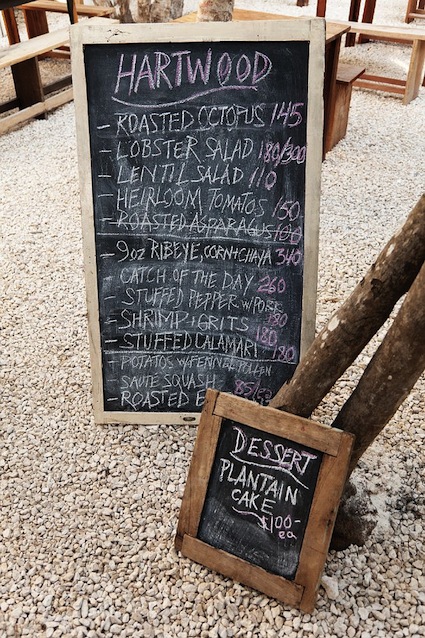 HARTWOOD
- ROASTED OCTOPUS 145
- LOBSTER SALAD 180/300
- LENTIL SALAD 110
- HEIRLOOM TOMATOS 150
- ROASTED ASPARAGUS 100
- 9oz RIBEYE, CORN+CHAYA 340
CATCH OF THE DAY 260
- STUFFED PEPPER W/PORK 180
- SHRIMP+GRITS 180
- STUFFED CALAMARI 180
- POTATOS W/FENNEL POLLEN
- SAUTE SQUASH 85/
- ROASTED
DESSERT
PLANTAIN
CAKE
$100-
ea